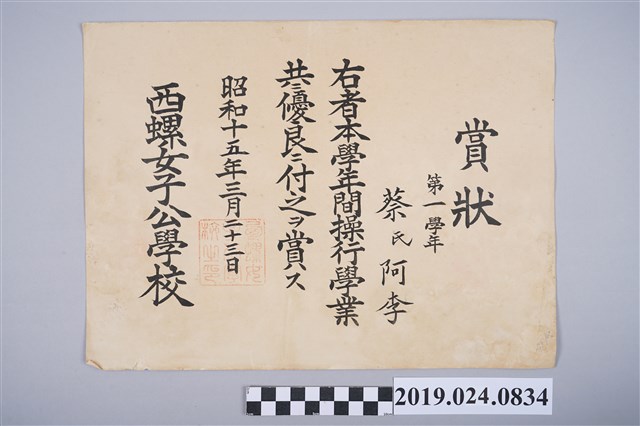 賞狀
第一學年
蔡氏阿李
右者本學年間操行學業
共ニ優良ニ付之ヲ賞ス
昭和十五年三月二十三日
西螺女子公學校
2019.024.0834